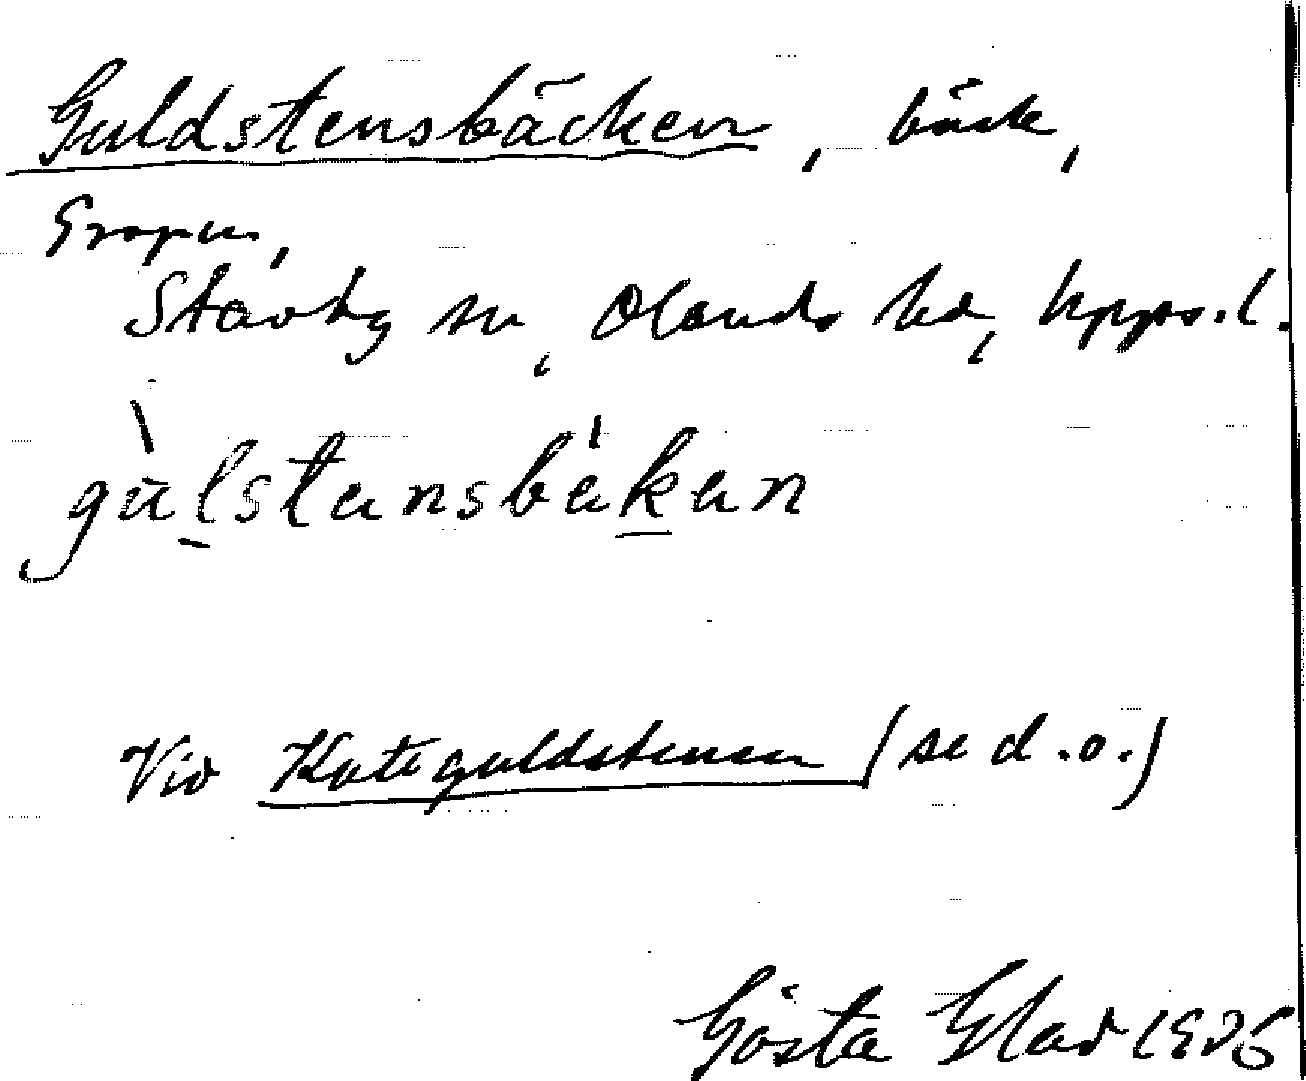 Guldstensbäcken, bäck,
Gropen,
Stavby sn, Olands hd, Upps.l.
gu̇lstensbäken
Vid Kateguldstenen (se d.o.)
Gösta Glad 1936